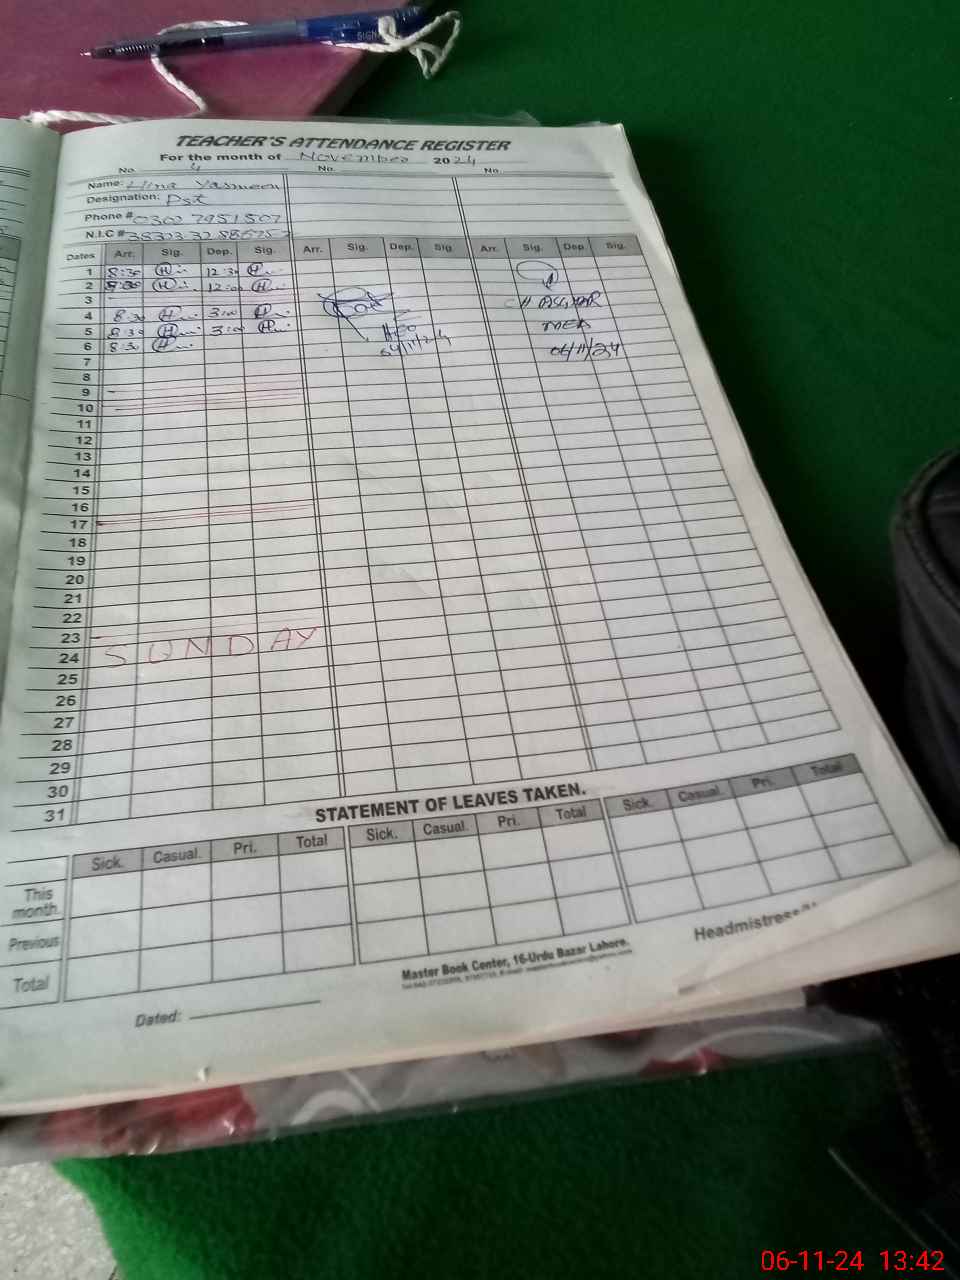 SIGN
TEACHER'S ATTENDANCE REGISTER
For the month of November 2024
No. 4 No. No.
Name: Hina Yasmeen
Designation: Pst
Phone #
N.I.C #
Dates Arr. Sig. Dep. Sig. Arr. Sig. Dep. Sig. Arr. Sig. Dep. Sig.
1 8:30 12:30
2 8:30 12:00
3
4 8:30 3:00 CH ASGHAR
5 8:30 3:00 AEO MEA
6 8:30 04/11/24 06/11/24
7
8
9
10
11
12
13
14
15
16
17
18
19
20
21
22
23
24 SUNDAY
25
26
27
28
29
30
31
STATEMENT OF LEAVES TAKEN.
Sick. Casual. Pri. Total Sick. Casual. Pri. Total Sick. Casual. Pri. Total
This month.
Previous
Total
Headmistress
Master Book Center, 16-Urdu Bazar Lahore.
Dated:
06-11-24 13:42